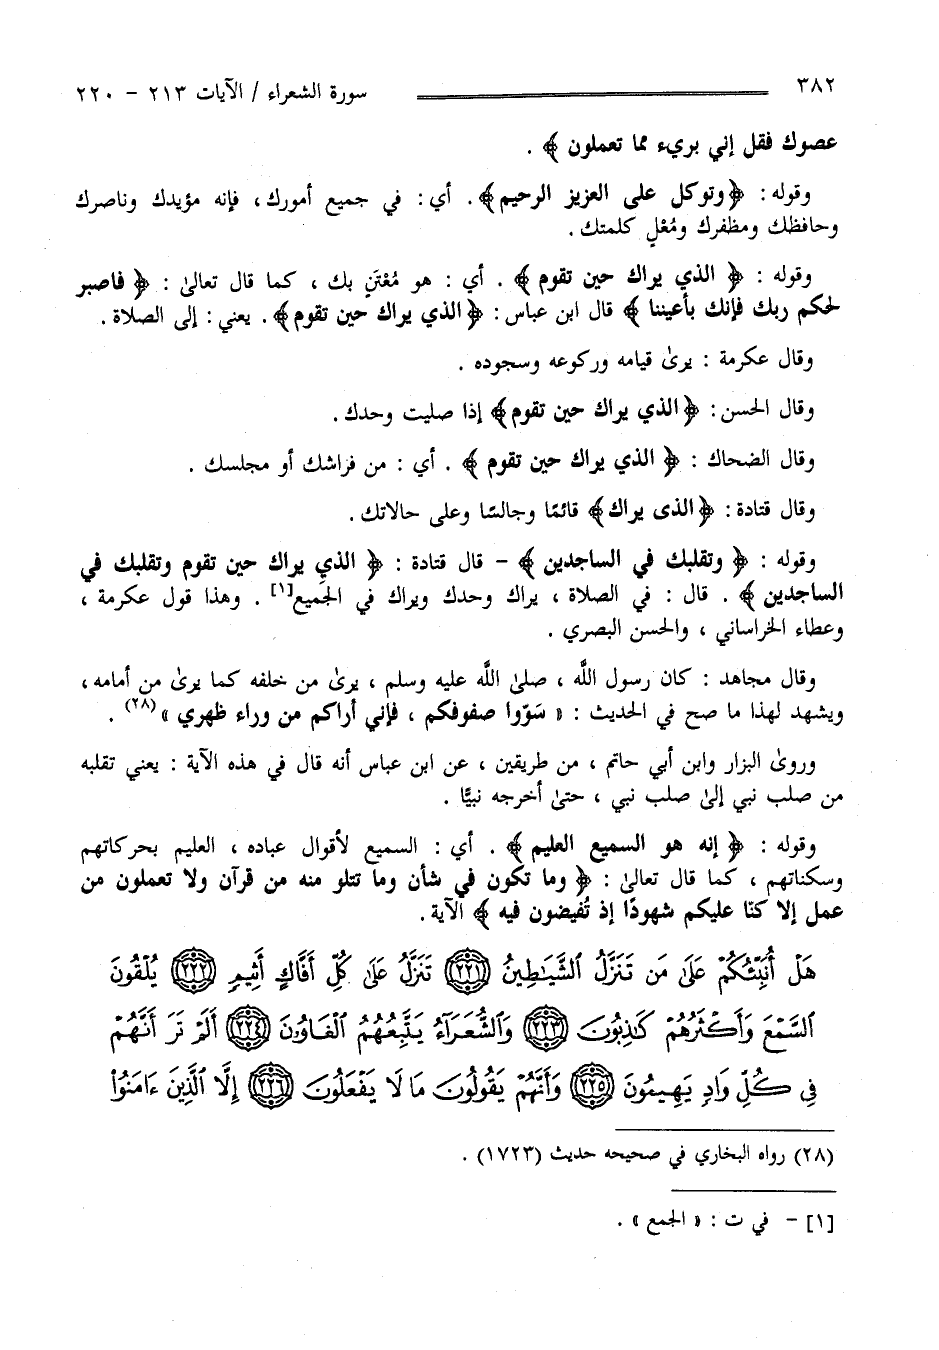 ٣٨٢ سورة الشعراء / الآيات ٢١٣ - ٢٢٠
عصوك فقل إني بريء مما تعملون ﴾ .
وقوله : ﴿ وتوكل على العزيز الرحيم ﴾ . أي : في جميع أمورك ، فإنه مؤيدك وناصرك
وحافظك ومظفرك ومُعْلٍ كلمتك .
وقوله : ﴿ الذي يراك حين تقوم ﴾ . أي : هو مُعْتَنٍ بك ، كما قال تعالىٰ : ﴿ فاصبر
لحكم ربك فإنك بأعيننا ﴾ قال ابن عباس : ﴿ الذي يراك حين تقوم ﴾ . يعني : إلى الصلاة .
وقال عكرمة : يرىٰ قيامه وركوعه وسجوده .
وقال الحسن : ﴿ الذي يراك حين تقوم ﴾ إذا صليت وحدك .
وقال الضحاك : ﴿ الذي يراك حين تقوم ﴾ . أي : من فراشك أو مجلسك .
وقال قتادة : ﴿ الذى يراك ﴾ قائمًا وجالسًا وعلى حالاتك .
وقوله : ﴿ وتقلبك في الساجدين ﴾ - قال قتادة : ﴿ الذي يراك حين تقوم وتقلبك في
الساجدين ﴾ . قال : في الصلاة ، يراك وحدك ويراك في الجَميع[١] . وهذا قول عكرمة ،
وعطاء الخراساني ، والحسن البصري .
وقال مجاهد : كان رسول اللَّه ، صلىٰ اللَّه عليه وسلم ، يرىٰ من خلفه كما يرىٰ من أمامه ،
ويشهد لهذا ما صح في الحديث : « سَوّوا صفوفكم ، فإني أراكم من وراء ظهري »(٢٨) .
وروىٰ البزار وابن أبي حاتم ، من طريقين ، عن ابن عباس أنه قال في هذه الآية : يعني تقلبه
من صلب نبي إلىٰ صلب نبي ، حتىٰ أخرجه نبيًّا .
وقوله : ﴿ إنه هو السميع العليم ﴾ . أي : السميع لأقوال عباده ، العليم بحركاتهم
وسكناتهم ، كما قال تعالىٰ : ﴿ وما تكون في شأن وما تتلو منه من قرآن ولا تعملون من
عمل إلا كنّا عليكم شهودًا إذ تُفيضون فيه ﴾ الآية .
هَلْ أُنَبِّئُكُمْ عَلَىٰ مَن تَنَزَّلُ ٱلشَّيَٰطِينُ ﴿٢٢١﴾ تَنَزَّلُ عَلَىٰ كُلِّ أَفَّاكٍ أَثِيمٍ ﴿٢٢٢﴾ يُلْقُونَ
ٱلسَّمْعَ وَأَكْثَرُهُمْ كَٰذِبُونَ ﴿٢٢٣﴾ وَٱلشُّعَرَآءُ يَتَّبِعُهُمُ ٱلْغَاوُۥنَ ﴿٢٢٤﴾ أَلَمْ تَرَ أَنَّهُمْ
فِى كُلِّ وَادٍ يَهِيمُونَ ﴿٢٢٥﴾ وَأَنَّهُمْ يَقُولُونَ مَا لَا يَفْعَلُونَ ﴿٢٢٦﴾ إِلَّا ٱلَّذِينَ ءَامَنُوا۟
(٢٨) رواه البخاري في صحيحه حديث (١٧٢٣) .
[١] - في ت : « الجمع » .